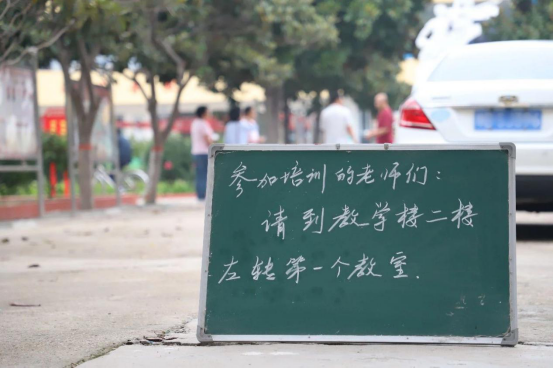 参加培训的老师们：
请到教学楼二楼
左转第一个教室.